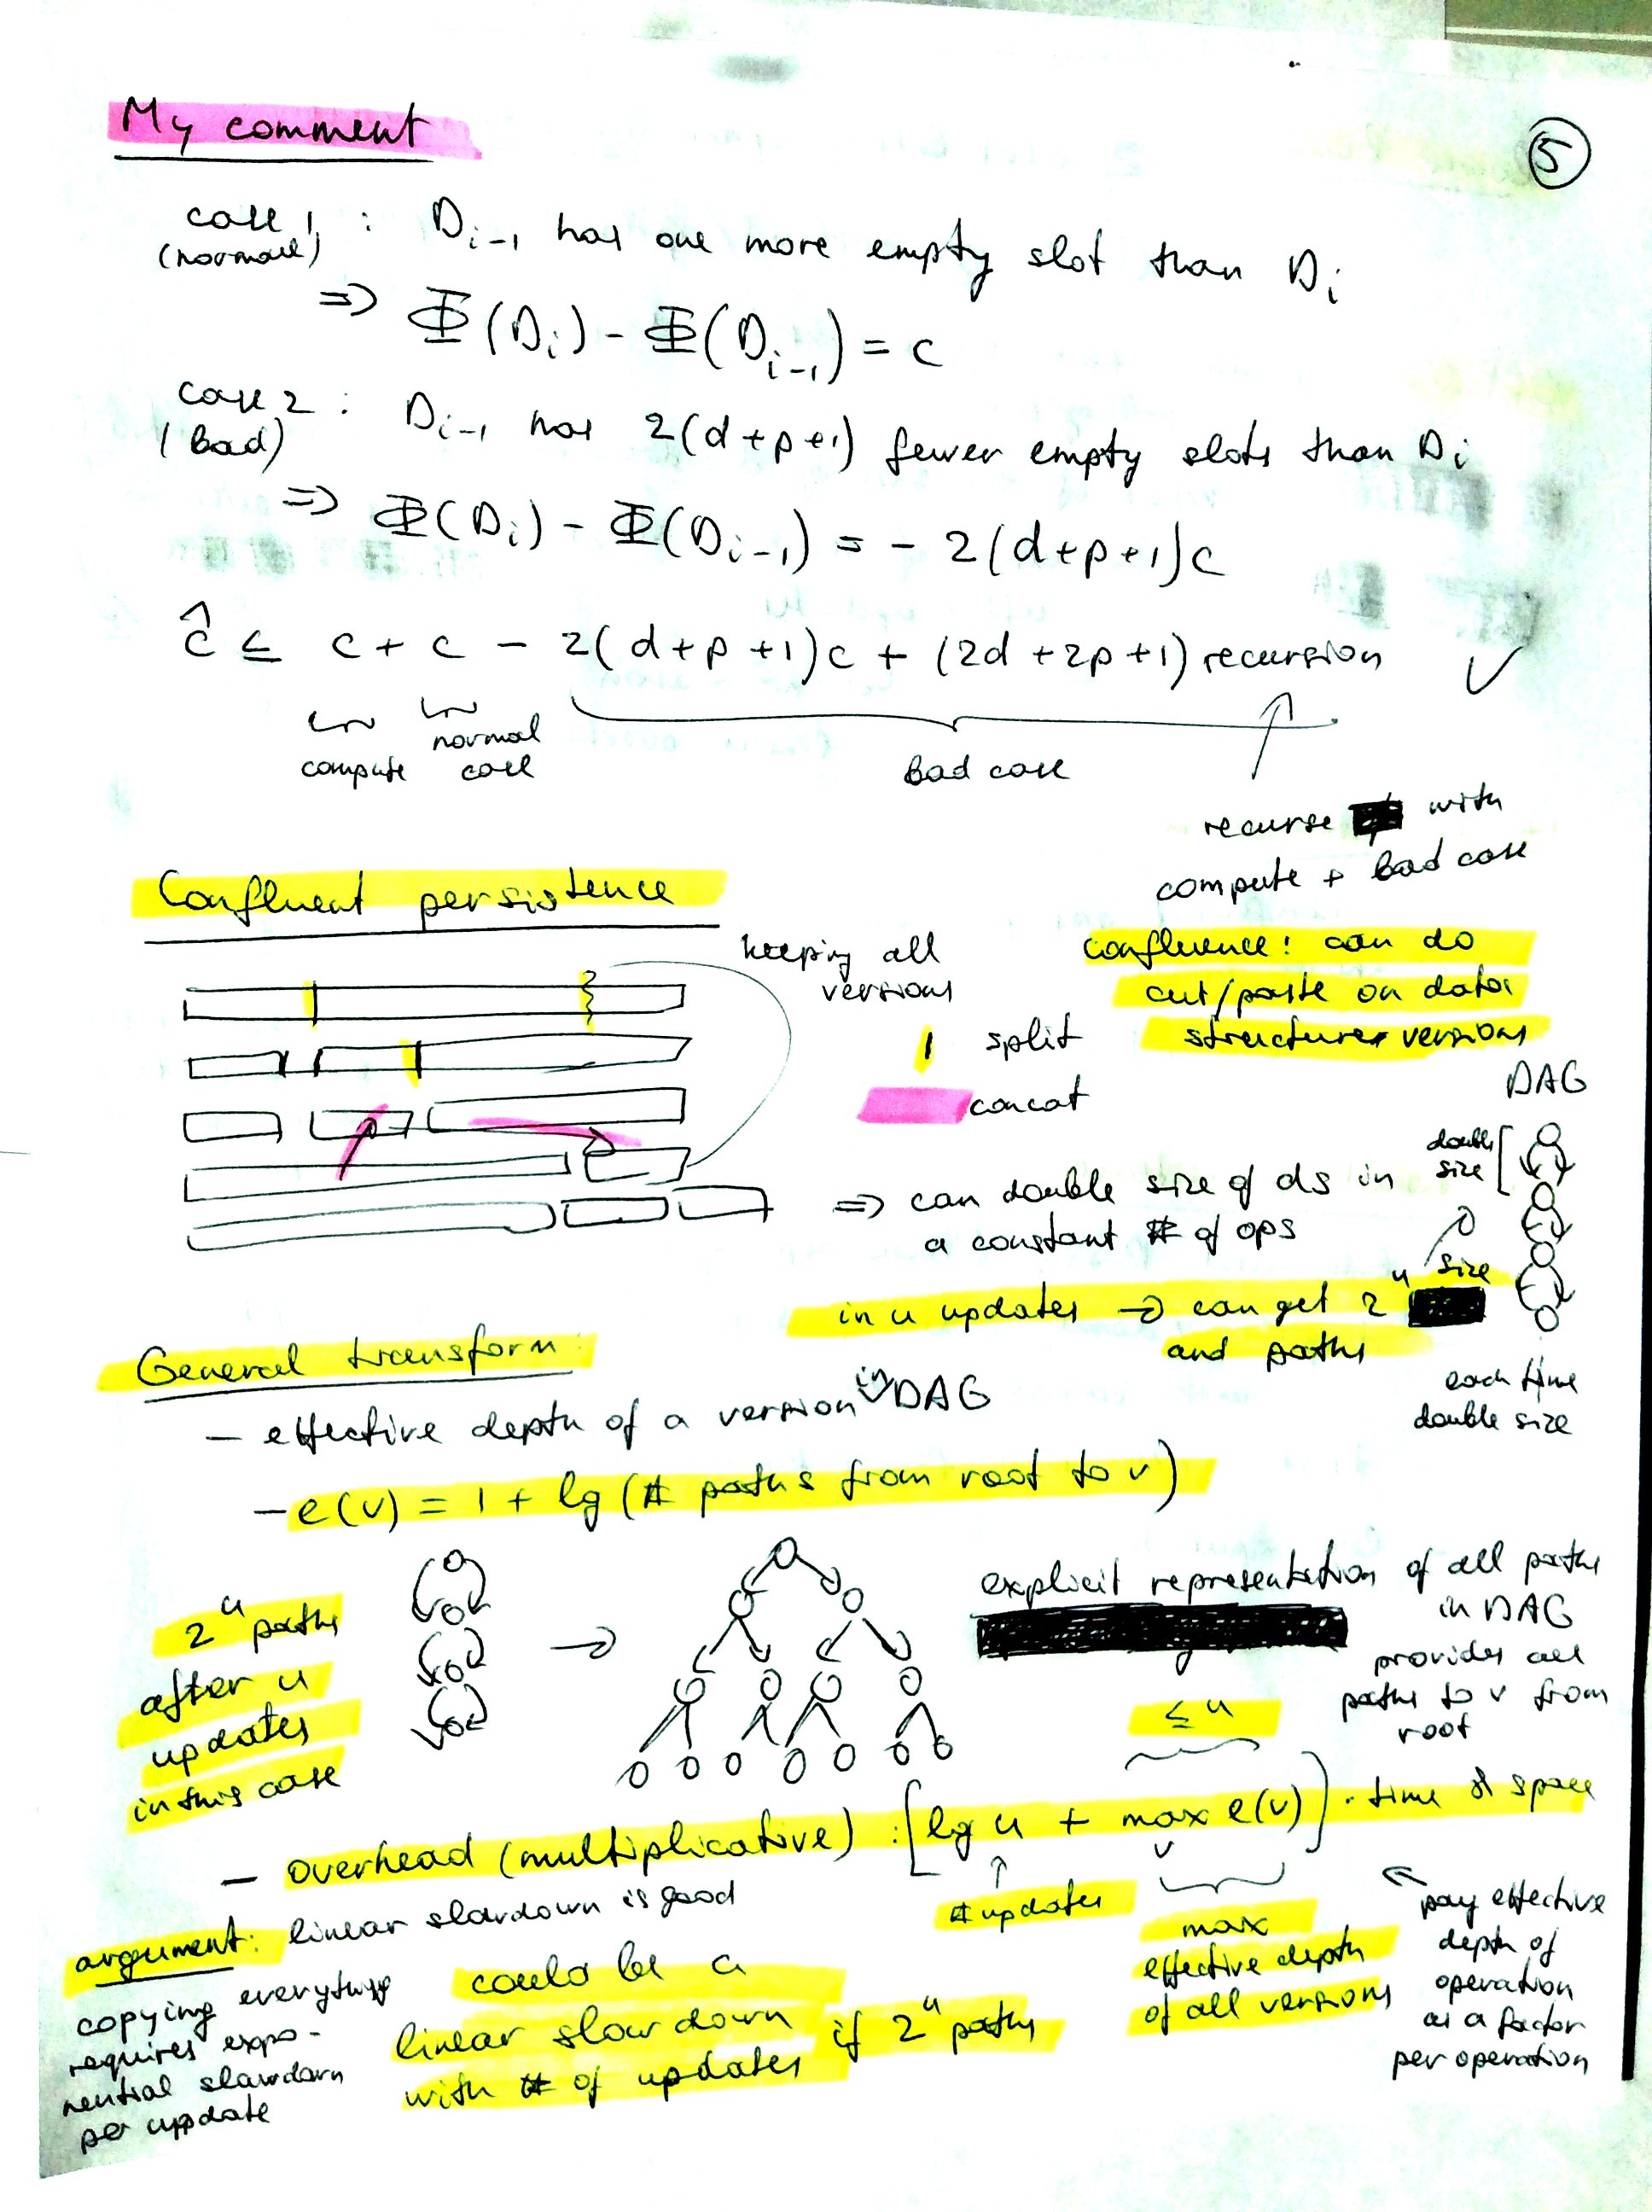 My comment
5
case 1 : D_{i-1} has one more empty slot than D_i
(normal)
=> Φ(D_i) - Φ(D_{i-1}) = c
case 2 : D_{i-1} has 2(d+p+1) fewer empty slots than D_i
(bad)
=> Φ(D_i) - Φ(D_{i-1}) = - 2(d+p+1)c
ĉ ≤ c + c - 2(d+p+1)c + (2d+2p+1) recursion ✓
compute
normal
case
bad case
recurse with
compute + bad case
Confluent persistence
keeping all
versions
split
concat
confluence: can do
cut/paste on data
structure versions
DAG
double
size
=> can double size of ds in
a constant # of ops
in u updates → can get 2^u size
and paths
each time
double size
General transform:
- effective depth of a version in DAG
- e(v) = 1 + lg (# paths from root to v)
2^u paths
after u
updates
in this case
→
explicit representation of all paths
in DAG
provides all
paths to v from
root
≤ u
- overhead (multiplicative) : [lg u + max e(v)] · time & space
v
# updates
max
effective depth
of all versions
pay effective
depth of
operation
as a factor
per operation
argument: linear slowdown is good
copying everything
requires expo-
nential slowdown
per update
could be a
linear slowdown
with # of updates if 2^u paths